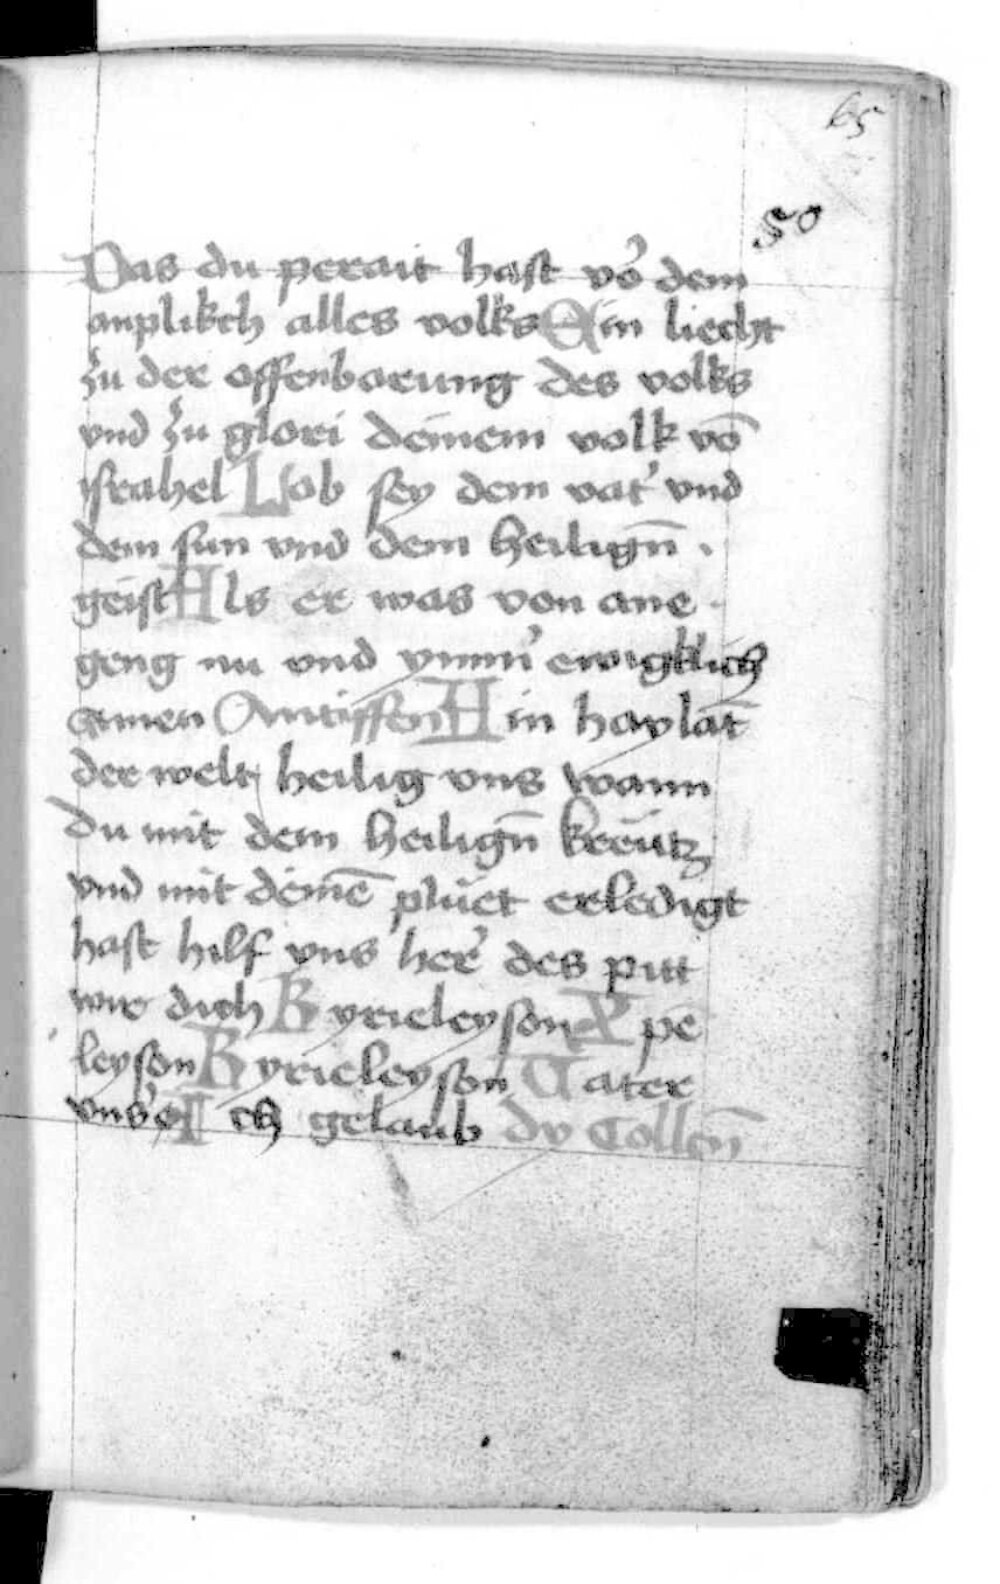 65
50
Das du perait hast vo᷑ dem
anplikch alles volks Ain liecht
zu der offenbarung des volks
vnd zu glori deinem volk vō
israhel Lob sey dem vat᷑ vnd
dem sun vnd dem heilign̄ .
geist Als er was von ane
geng nu vnd ymm᷑ ewigklich
Amen Antiffen A in haylāt
der welt heilig vns wann
du mit dem heilign̄ kreütz
vnd mit deinē plüet erledigt
hast hilf vns her᷑ des pitt
wir dich Kyrieleyson Xpē
leyson Kyrieleyson Vater
vns᷑ Ich gelaub dy Collen̄